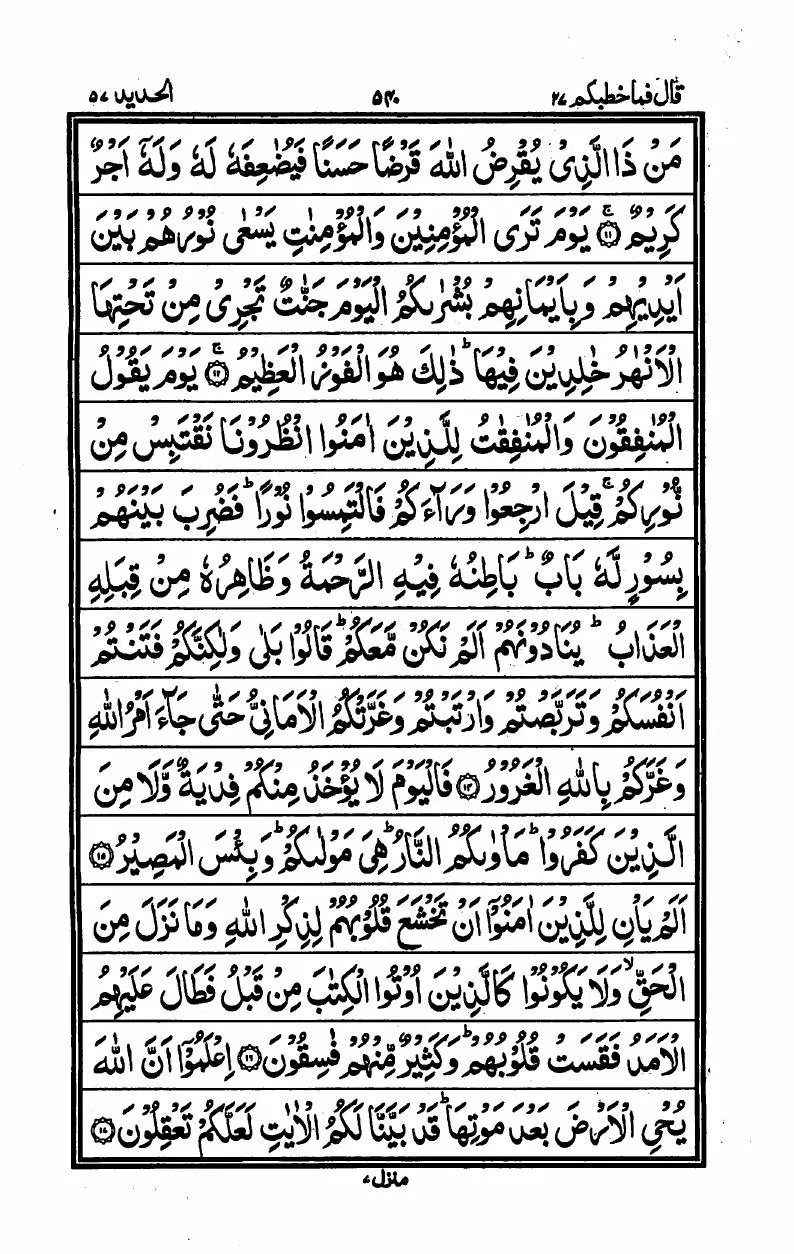 قَالَ فَمَا خَطْبُكُمْ ٢٧ ٥٤٠ الحديد ٥٧
مَنْ ذَا الَّذِىْ يُقْرِضُ اللّٰهَ قَرْضًا حَسَنًا فَيُضٰعِفَهٗ لَهٗ وَلَهٗٓ اَجْرٌ
كَرِيْمٌ ۚ‏﴿١١﴾ يَوْمَ تَرَى الْمُؤْمِنِيْنَ وَالْمُؤْمِنٰتِ يَسْعٰى نُوْرُهُمْ بَيْنَ
اَيْدِيْهِمْ وَبِاَيْمَانِهِمْ بُشْرٰىكُمُ الْيَوْمَ جَنّٰتٌ تَجْرِىْ مِنْ تَحْتِهَا
الْاَنْهٰرُ خٰلِدِيْنَ فِيْهَا ؕ ذٰلِكَ هُوَ الْفَوْزُ الْعَظِيْمُ ۚ‏﴿١٢﴾ يَوْمَ يَقُوْلُ
الْمُنٰفِقُوْنَ وَالْمُنٰفِقٰتُ لِلَّذِيْنَ اٰمَنُوا انْظُرُوْنَا نَقْتَبِسْ مِنْ
نُّوْرِكُمْ ۚ قِيْلَ ارْجِعُوْا وَرَآءَكُمْ فَالْتَمِسُوْا نُوْرًا ؕ فَضُرِبَ بَيْنَهُمْ
بِسُوْرٍ لَّهٗ بَابٌ ؕ بَاطِنُهٗ فِيْهِ الرَّحْمَةُ وَظَاهِرُهٗ مِنْ قِبَلِهِ
الْعَذَابُ ؕ يُنَادُوْنَهُمْ اَلَمْ نَكُنْ مَّعَكُمْ ؕ قَالُوْا بَلٰى وَلٰكِنَّكُمْ فَتَنْتُمْ
اَنْفُسَكُمْ وَتَرَبَّصْتُمْ وَارْتَبْتُمْ وَغَرَّتْكُمُ الْاَمَانِىُّ حَتّٰى جَآءَ اَمْرُ اللّٰهِ
وَغَرَّكُمْ بِاللّٰهِ الْغَرُوْرُ ﴿١٤﴾ فَالْيَوْمَ لَا يُؤْخَذُ مِنْكُمْ فِدْيَةٌ وَّلَا مِنَ
الَّذِيْنَ كَفَرُوْا ؕ مَاْوٰىكُمُ النَّارُ ؕ هِىَ مَوْلٰىكُمْ ؕ وَبِئْسَ الْمَصِيْرُ ﴿١٥﴾
اَلَمْ يَاْنِ لِلَّذِيْنَ اٰمَنُوْٓا اَنْ تَخْشَعَ قُلُوْبُهُمْ لِذِكْرِ اللّٰهِ وَمَا نَزَلَ مِنَ
الْحَقِّ ۙ وَلَا يَكُوْنُوْا كَالَّذِيْنَ اُوْتُوا الْكِتٰبَ مِنْ قَبْلُ فَطَالَ عَلَيْهِمُ
الْاَمَدُ فَقَسَتْ قُلُوْبُهُمْ ؕ وَكَثِيْرٌ مِّنْهُمْ فٰسِقُوْنَ ﴿١٦﴾ اِعْلَمُوْٓا اَنَّ اللّٰهَ
يُحْىِ الْاَرْضَ بَعْدَ مَوْتِهَا ؕ قَدْ بَيَّنَّا لَكُمُ الْاٰيٰتِ لَعَلَّكُمْ تَعْقِلُوْنَ ﴿١٧﴾
منزل ٧